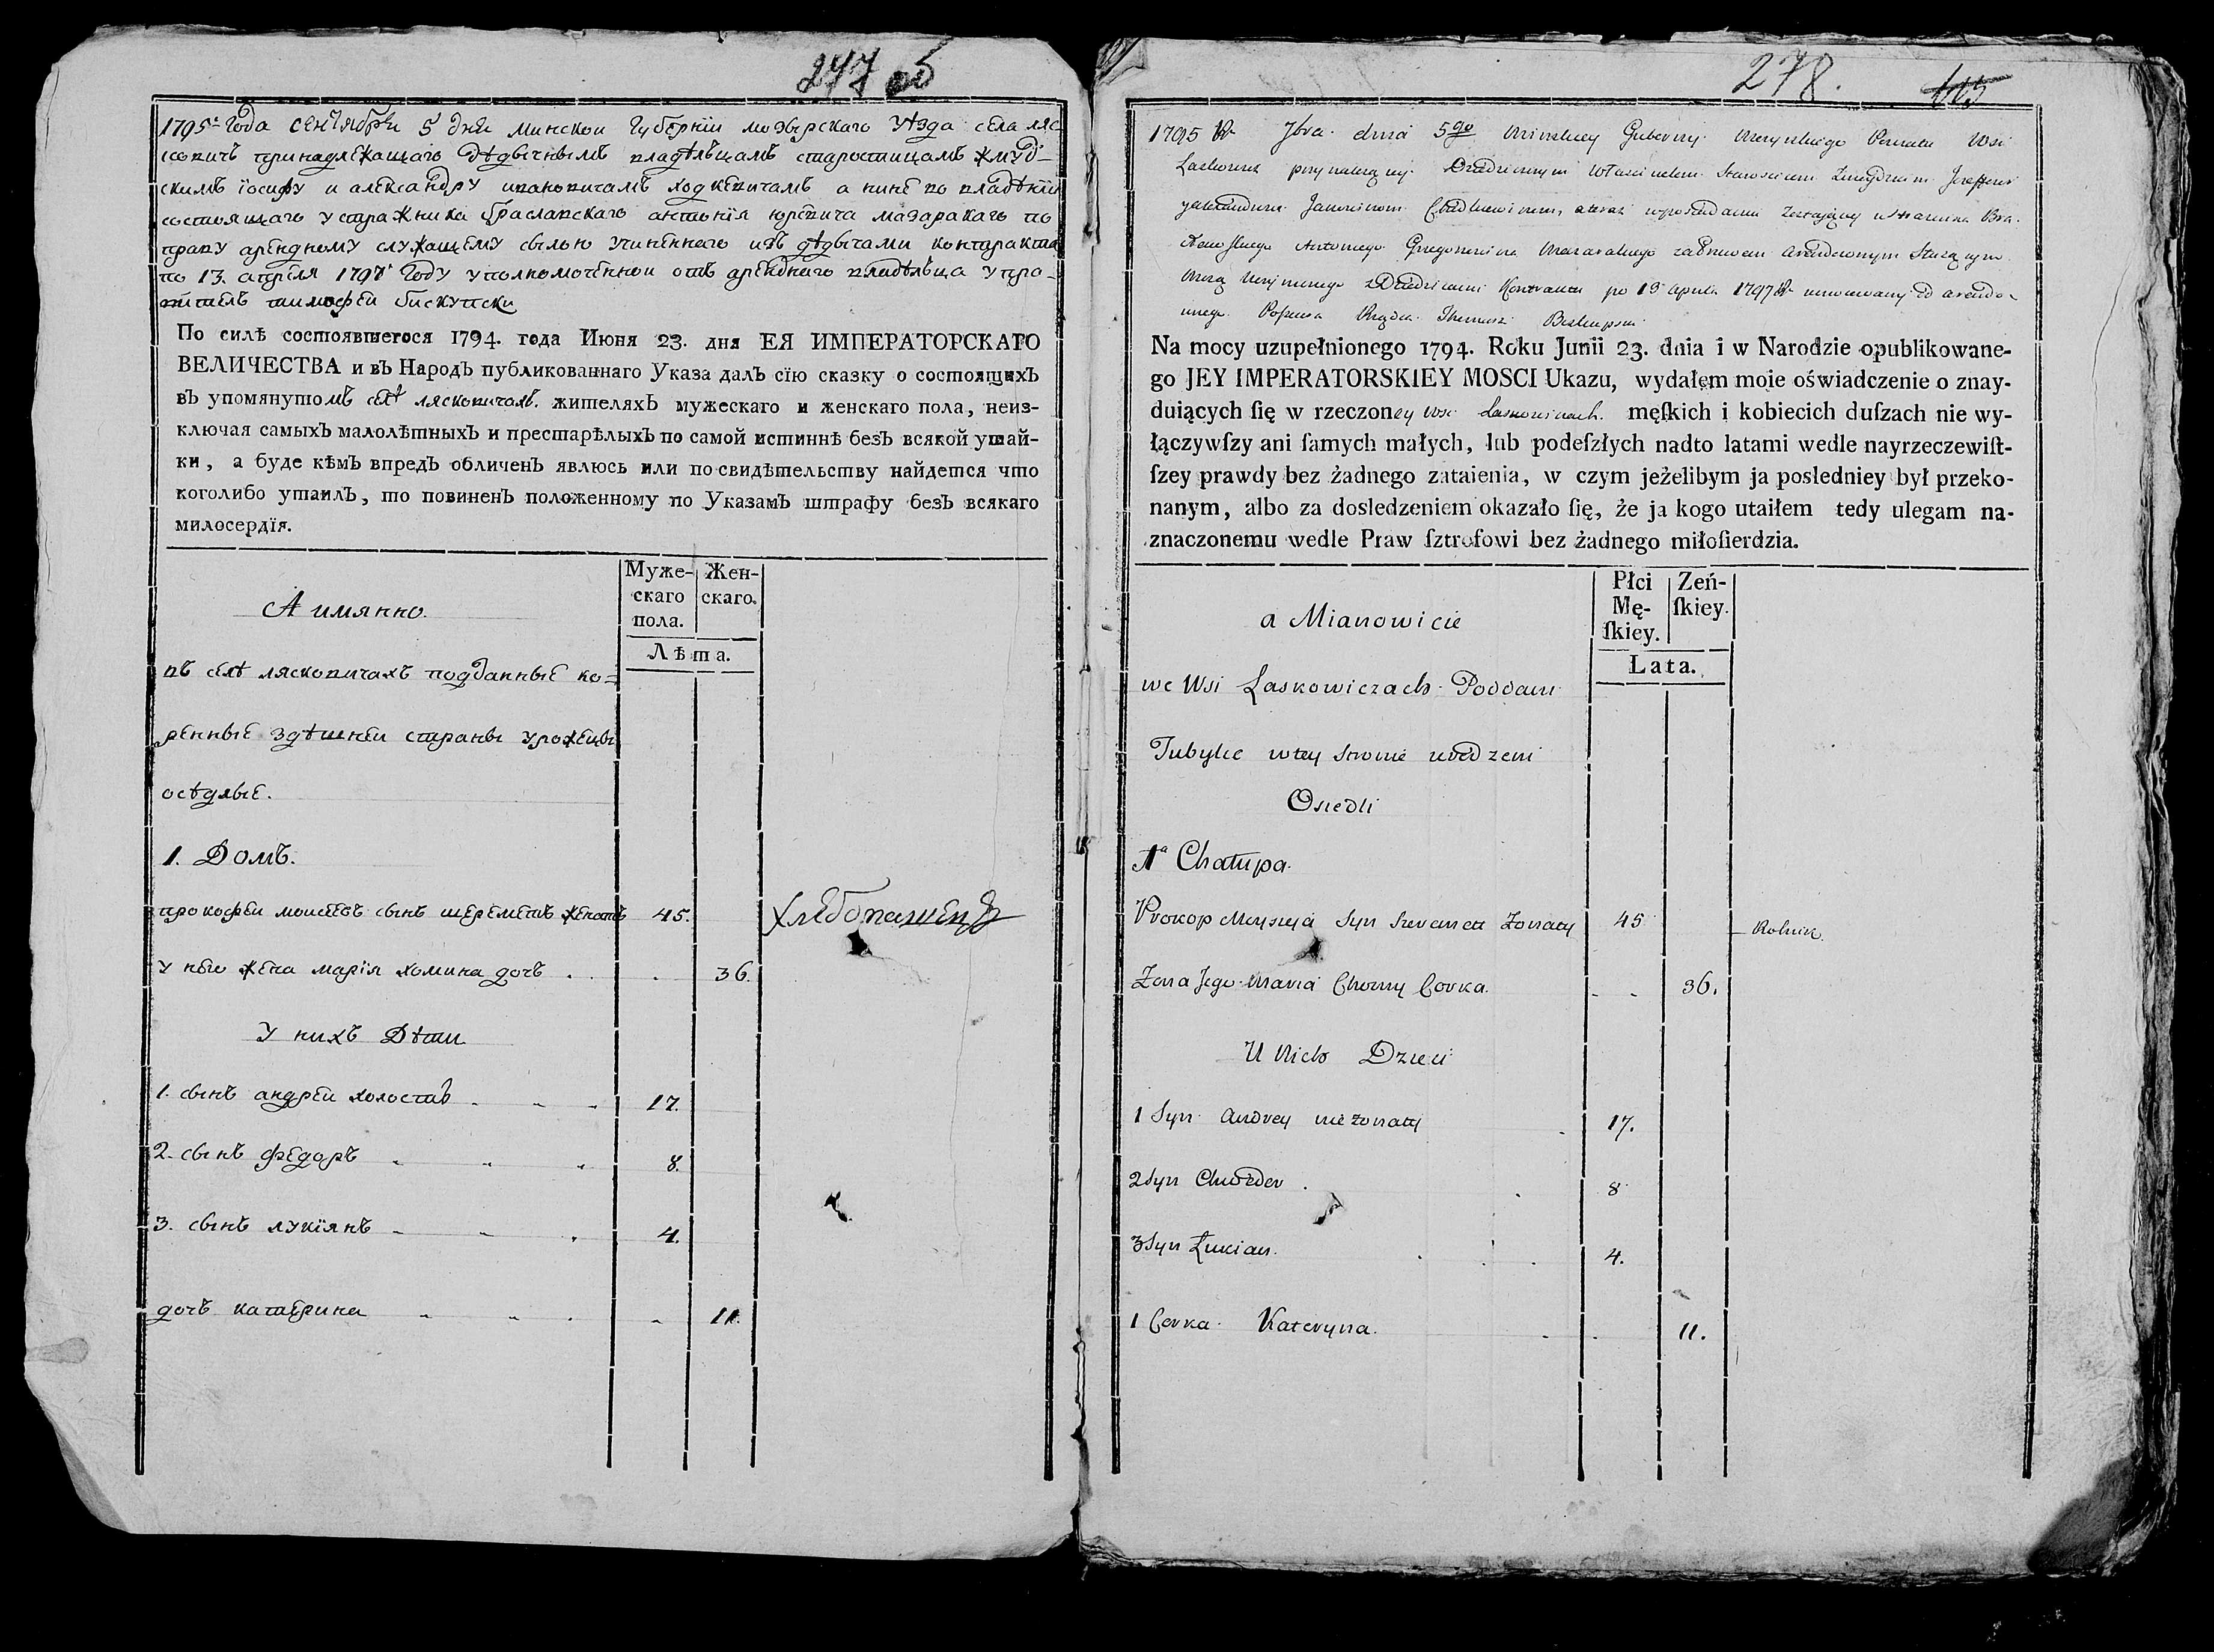 277 об
1795г Года сентября 5 дня минской Губернии мозырскаго уѣзда села ляс
ковичъ принадлежащаго дѣдычнымъ владѣльцамъ старостицамъ жмуд-
скимъ іосифу и александру ивановичамъ ходкевичамъ а нине во владѣніи
состоящаго у стражника браславскаго антонія юревича мазаракаго по
праву арендному служащему силою учиненнаго изъ дѣдычами контракта
по 13. апреля 1797г Году уполномоченной отъ арендного владѣльца упра-
витель тимофей бискупски
По силѣ состоявшегося 1794. года Июня 23. дня ЕЯ ИМПЕРАТОРСКАГО
ВЕЛИЧЕСТВА и въ Народъ публикованнаго Указа далъ сїю сказку о состоящихъ
въ упомянутомъ селѣ лясковичахъ. жителяхъ мужескаго и женскаго пола, неиз-
ключая самыхъ малолѣтныхъ и престарѣлыхъ по самой истиннѣ безъ всякой утай-
ки, а буде кѣмъ впредъ обличенъ явлюсь или по свидѣтельству найдется что
коголибо утаилъ, то повиненъ положенному по Указамъ штрафу безъ всякаго
милосердїя.
А имянно.
Муже-
скаго
пола.
Жен-
скаго.
Лѣта.
въ селѣ лясковичахъ подданные ко=
ренные здѣшней страны уроженцы
осѣдлые.
1. Домъ.
прокофей моисеевъ сынъ шереметъ женатъ 45. хлебопашецъ
у него жена марія хомина дочь . . 36.
У нихъ Дѣти
1. сынъ андрей холостъ 17.
2. сынъ федоръ 8.
3. сынъ лукіянъ 4.
дочь катерина 11.
278.
1795 R 7bra dnia 5go Minskiey Guberny Mozyrskiego Powiatu Wsi
Laskowicz przynależącey Dziedzicznym Właścicielom Starościcom Żmuydzkim Jozeffowi
Janowiczom Chodkiewiczom, a teraz w posiadaniu zostającey u Strażnika Bra.
sławskiego Antoniego Gregorowicza Mazarakiego za Prawem Arendownym Służącym
Mocą uczynionego z Dziedzicami Kontraktu po 13 Aprila 1797 R umocowany od arendo-
wnego Possesora Rządca Biskupski
Na mocy uzupełnionego 1794. Roku Junii 23. dnia i w Narodzie opublikowane-
go JEY IMPERATORSKIEY MOSCI Ukazu, wydałem moie oświadczenie o znay-
duiących ſię w rzeczoney Wsi Laskowiczach. męſkich i kobiecich duſzach nie wy-
łączywſzy ani ſamych małych, lub podeſzłych nadto latami wedle nayrzeczewiſt-
ſzey prawdy bez żadnego zataienia, w czym jeżelibym ja posledniey był przeko-
nanym, albo za dosledzeniem okazało ſię, że ja kogo utaiłem tedy ulegam na-
znaczonemu wedle Praw ſztrofowi bez żadnego miłoſierdzia.
a Mianowicie
Płci
Mę-
ſkiey.
Zeń-
ſkiey.
Lata.
we Wsi Laskowiczach Poddani
Tubylce w tey stronie urodzeni
Osiedli
1a Chałupa.
Prokop Moysieja Syn Szeremett Żonaty 45 Rolnik.
Żona Jego Maria Chomy Corka. 36.
U Nich Dzieci
1 Syn Andrey nieżonaty 17.
2 Syn Chwedor 8
3 Syn Łukian. 4.
1 Corka Kateryna. 11.